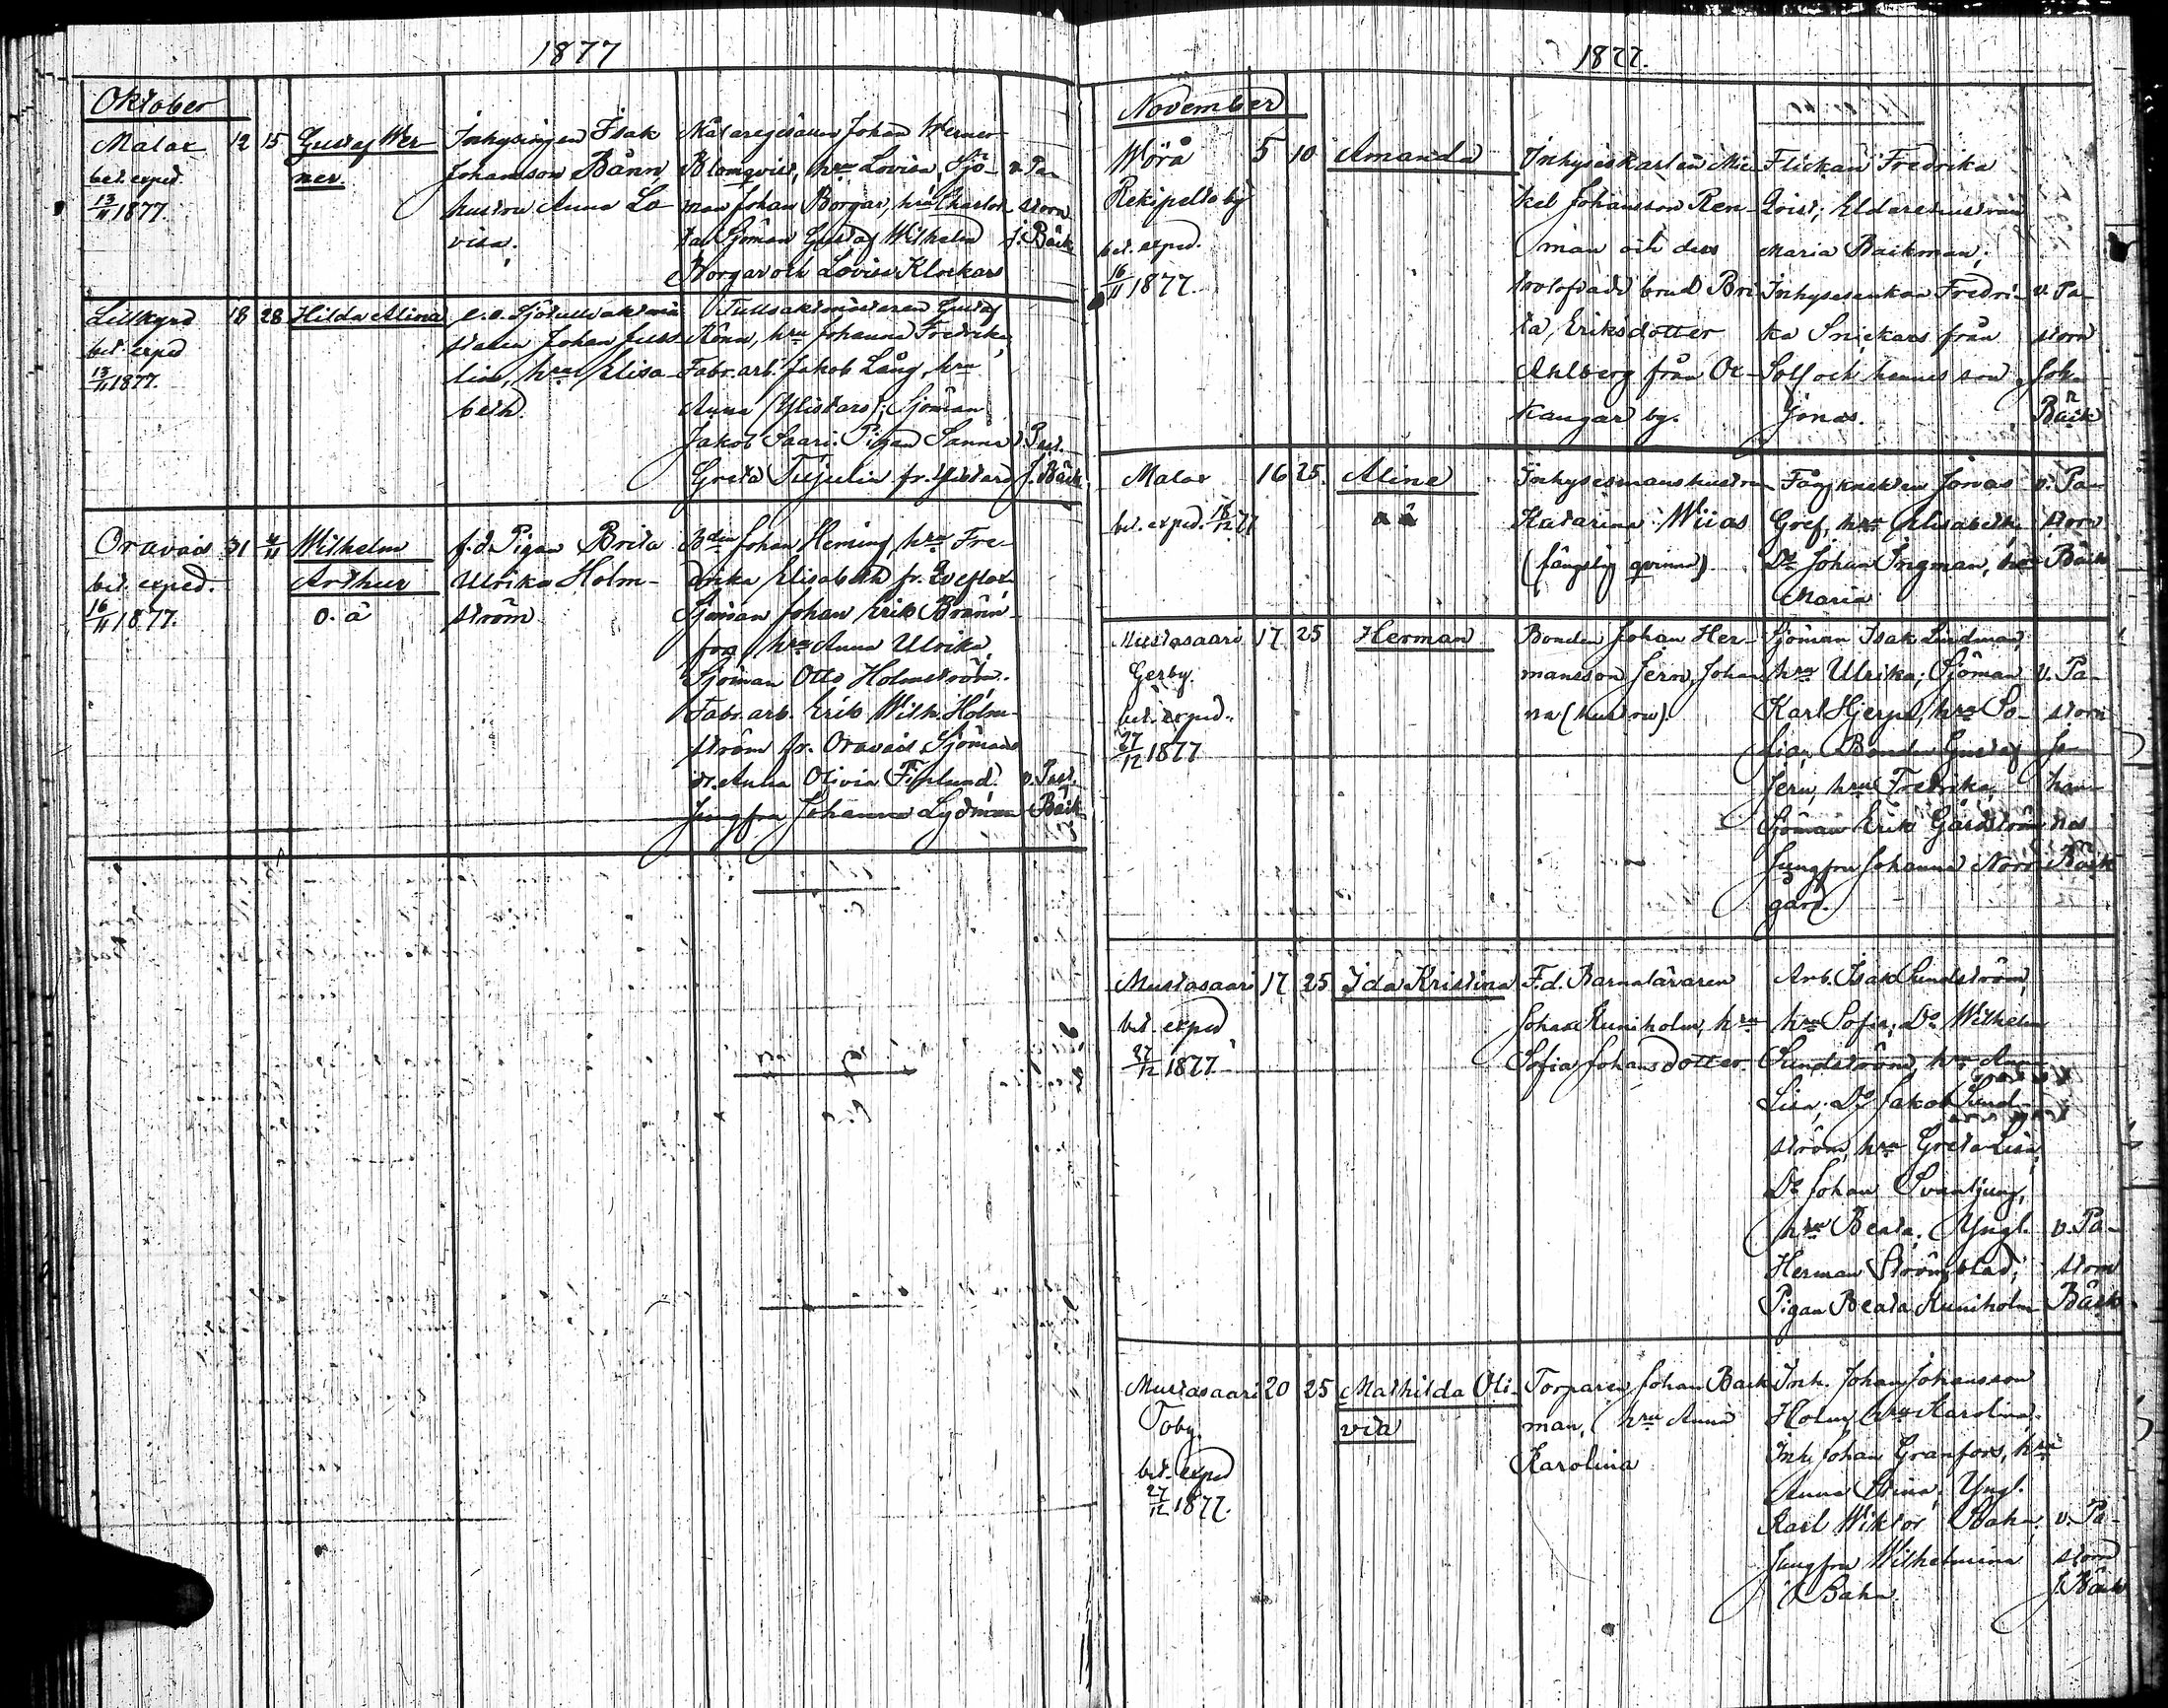 1877
Oktober
Malax 12 15 Gustaf Wer-
ner
bet. exped.
13/11 1877.
Inhysingen Isak
Johansson Bånn
hustru Anna Lo-
visa.
Målaregesällen Johan Werner
Blomqvist, hru Lovisa, Sjö-
man Johan Borgar, hru Charlot-
ta Sjöman Gustaf Wilhelm
Borgar och Lovisa Klockars
v. Pa-
storn
J. Bäck
Lillkyro 18 28 Hilda Alina
bet. exped
13/11 1877.
e.o. Sjötullvaktmä-
staren Johan
lin, hru Elisa-
beth.
Tullvaktmästaren Gustaf
Rönn, hru Johanna Fredrika,
Fabr. arb. Jakob Lång, hru
Anna (Ylistaro); Sjöman
Jakob Saari. Pigan Sanna
Greta fr. Ylistaro
v. Past.
J. Bäck
Oravais 31 4/11 Wilhelm
Arthur
o. ä
bet. exped.
16/11 1877.
f.d. Pigan Brita
Ulrika Holm-
ström
Bdn Johan Heming, hru Fre-
drika Elisabeth fr. Qveflax
Sjöman Johan Erik Bränn-
fors, hru Anna Ulrika
Sjöman Otto Holmström.
Fabr. arb. Erik Wilh. Holm-
ström fr. Oravais Sjömans
d. Anna Olivia Finlund
Jungfru Johanna Lydman
v. Past.
Bäck
1877.
November
Wörå 5 10 Amanda
Rekipelto by
bet. exped.
16/11 1877.
Inhyseskarlen Mic-
kel Johansson Ren-
man och dess
trolofvade brud Bri-
ta Eriksdotter
Ahlberg från Oc-
kangar by.
Flickan Fredrika
Qvist; Eldarehustrun
Maria Backman;
Inhysesenkan Fredri-
ka Snickars från
Solf och hennes son
Jonas.
v. Pa-
storn
Joh.
Bäck
Malax 16 25. Aline
bet. exped. 18/12 77
o ä
Inhysesmanshustrun
Katarina Wiias
(fängslig qvinna)
Fångknekten Jonas
Gref, hru Elisabeth;
Do Johan Ingman, hru
Maria
v. Pa-
storn
Bäck
Mustasaari 17 25 Herman
Gerby.
bet. exped.
27/12 1877
Bonden Johan Her-
mansson Jern, Johan
na (hustru).
Sjöman Isak Lindman,
hru Ulrika; Sjöman
Karl Hjerpe, hru So-
fia, Bonden Gustaf
Jern, hru Fredrika,
Sjöman Erik Gårdström
Jungfru Johanna Norr-
gård.
v. Pa-
storn
Jo-
han-
nes
Bäck
Mustasaari 17 25 Ida Kristina
bet. exped
27/12 1877
F.d. Barnaläraren
Johan Kuniholm, hru
Sofia Johansdotter.
Arb. Isak Sundström,
hru Sofia; Do Wilhelm
Sundström, hru Anna
Lisa; Do Jakob Sund-
ström, hru Greta Lisa;
Do Johan Svanljung,
hru Beata; Yngl.
Herman Strömblad;
Pigan Beata Kuniholm
v. Pa-
storn
Bäck
Mustasaari 20 25 Mathilda Oli-
via
Toby
bet. exped
27/12 1877.
Torparen Johan Back-
man, hru Anna
Karolina
Inh. Johan Johansson
Holm, hru Karolina.
Inh. Johan Granfors, hru
Anna Stina; Yngl.
Karl Wiktor Bahn;
Jungfru Wilhelmina
Bahn.
v. Pa-
storn
J. Bäck